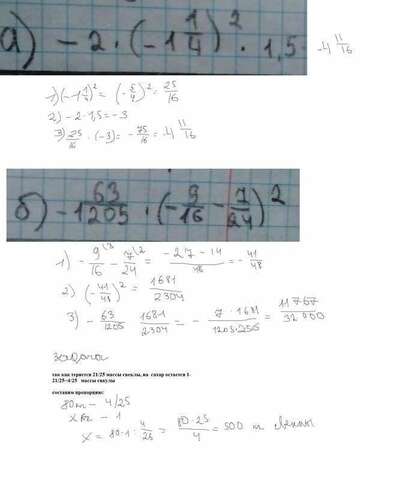 а) -2 · (-1 1/4)² · 1,5 = -4 11/16
1) (-1 1/4)² = (-5/4)² = 25/16
2) -2 · 1,5 = -3
3) 25/16 · (-3) = -75/16 = -4 11/16
б) -63/1205 · (-9/16 - 7/24)²
1) -9\3/16 - 7\2/24 = -27-14/48 = -41/48
2) (-41/48)² = 1681/2304
3) -63/1205 · 1681/2304 = -7 · 1681/1205·256 =
задача
так как теряется 21/25 массы свеклы, на сахар остается 1-
21/25=4/25 массы свеклы
составим пропорцию:
80т - 4/25
х - 1
х = 80·1 : 4/25 = 80·25/4 = 500 т свеклы